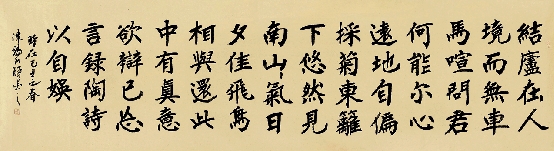 結廬在人
境而無車
馬喧問君
何能尔心
遠地自偏
採菊東籬
下悠然見
南山々氣日
夕佳飛鳥
相與還此
中有真意
欲辯已忘
言録陶詩
以自娱